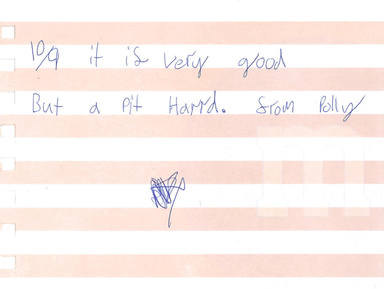 10/9 it is very good
But a Pit Harrd. from Polly
m